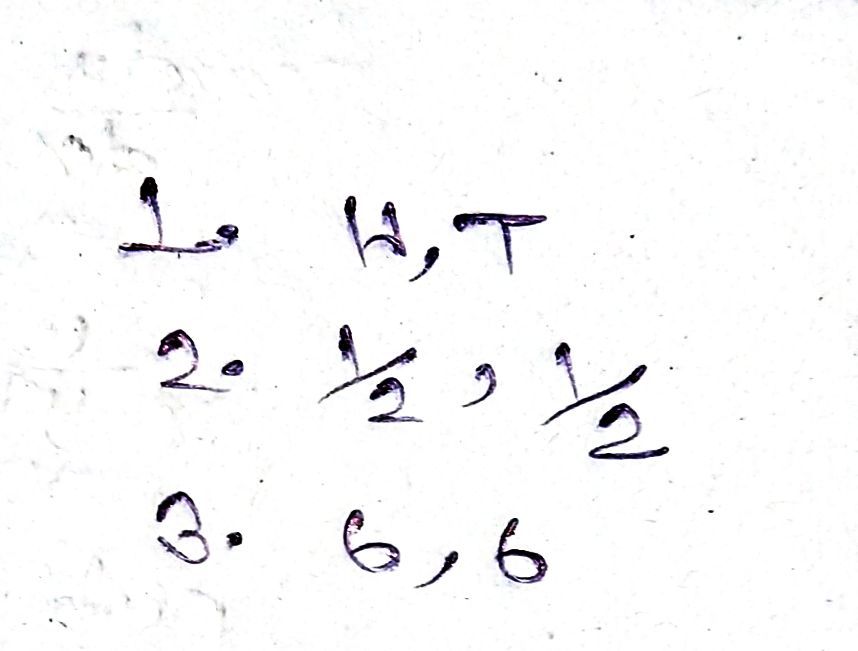 1. H, T
2. 1/2, 1/2
3. 6, 6